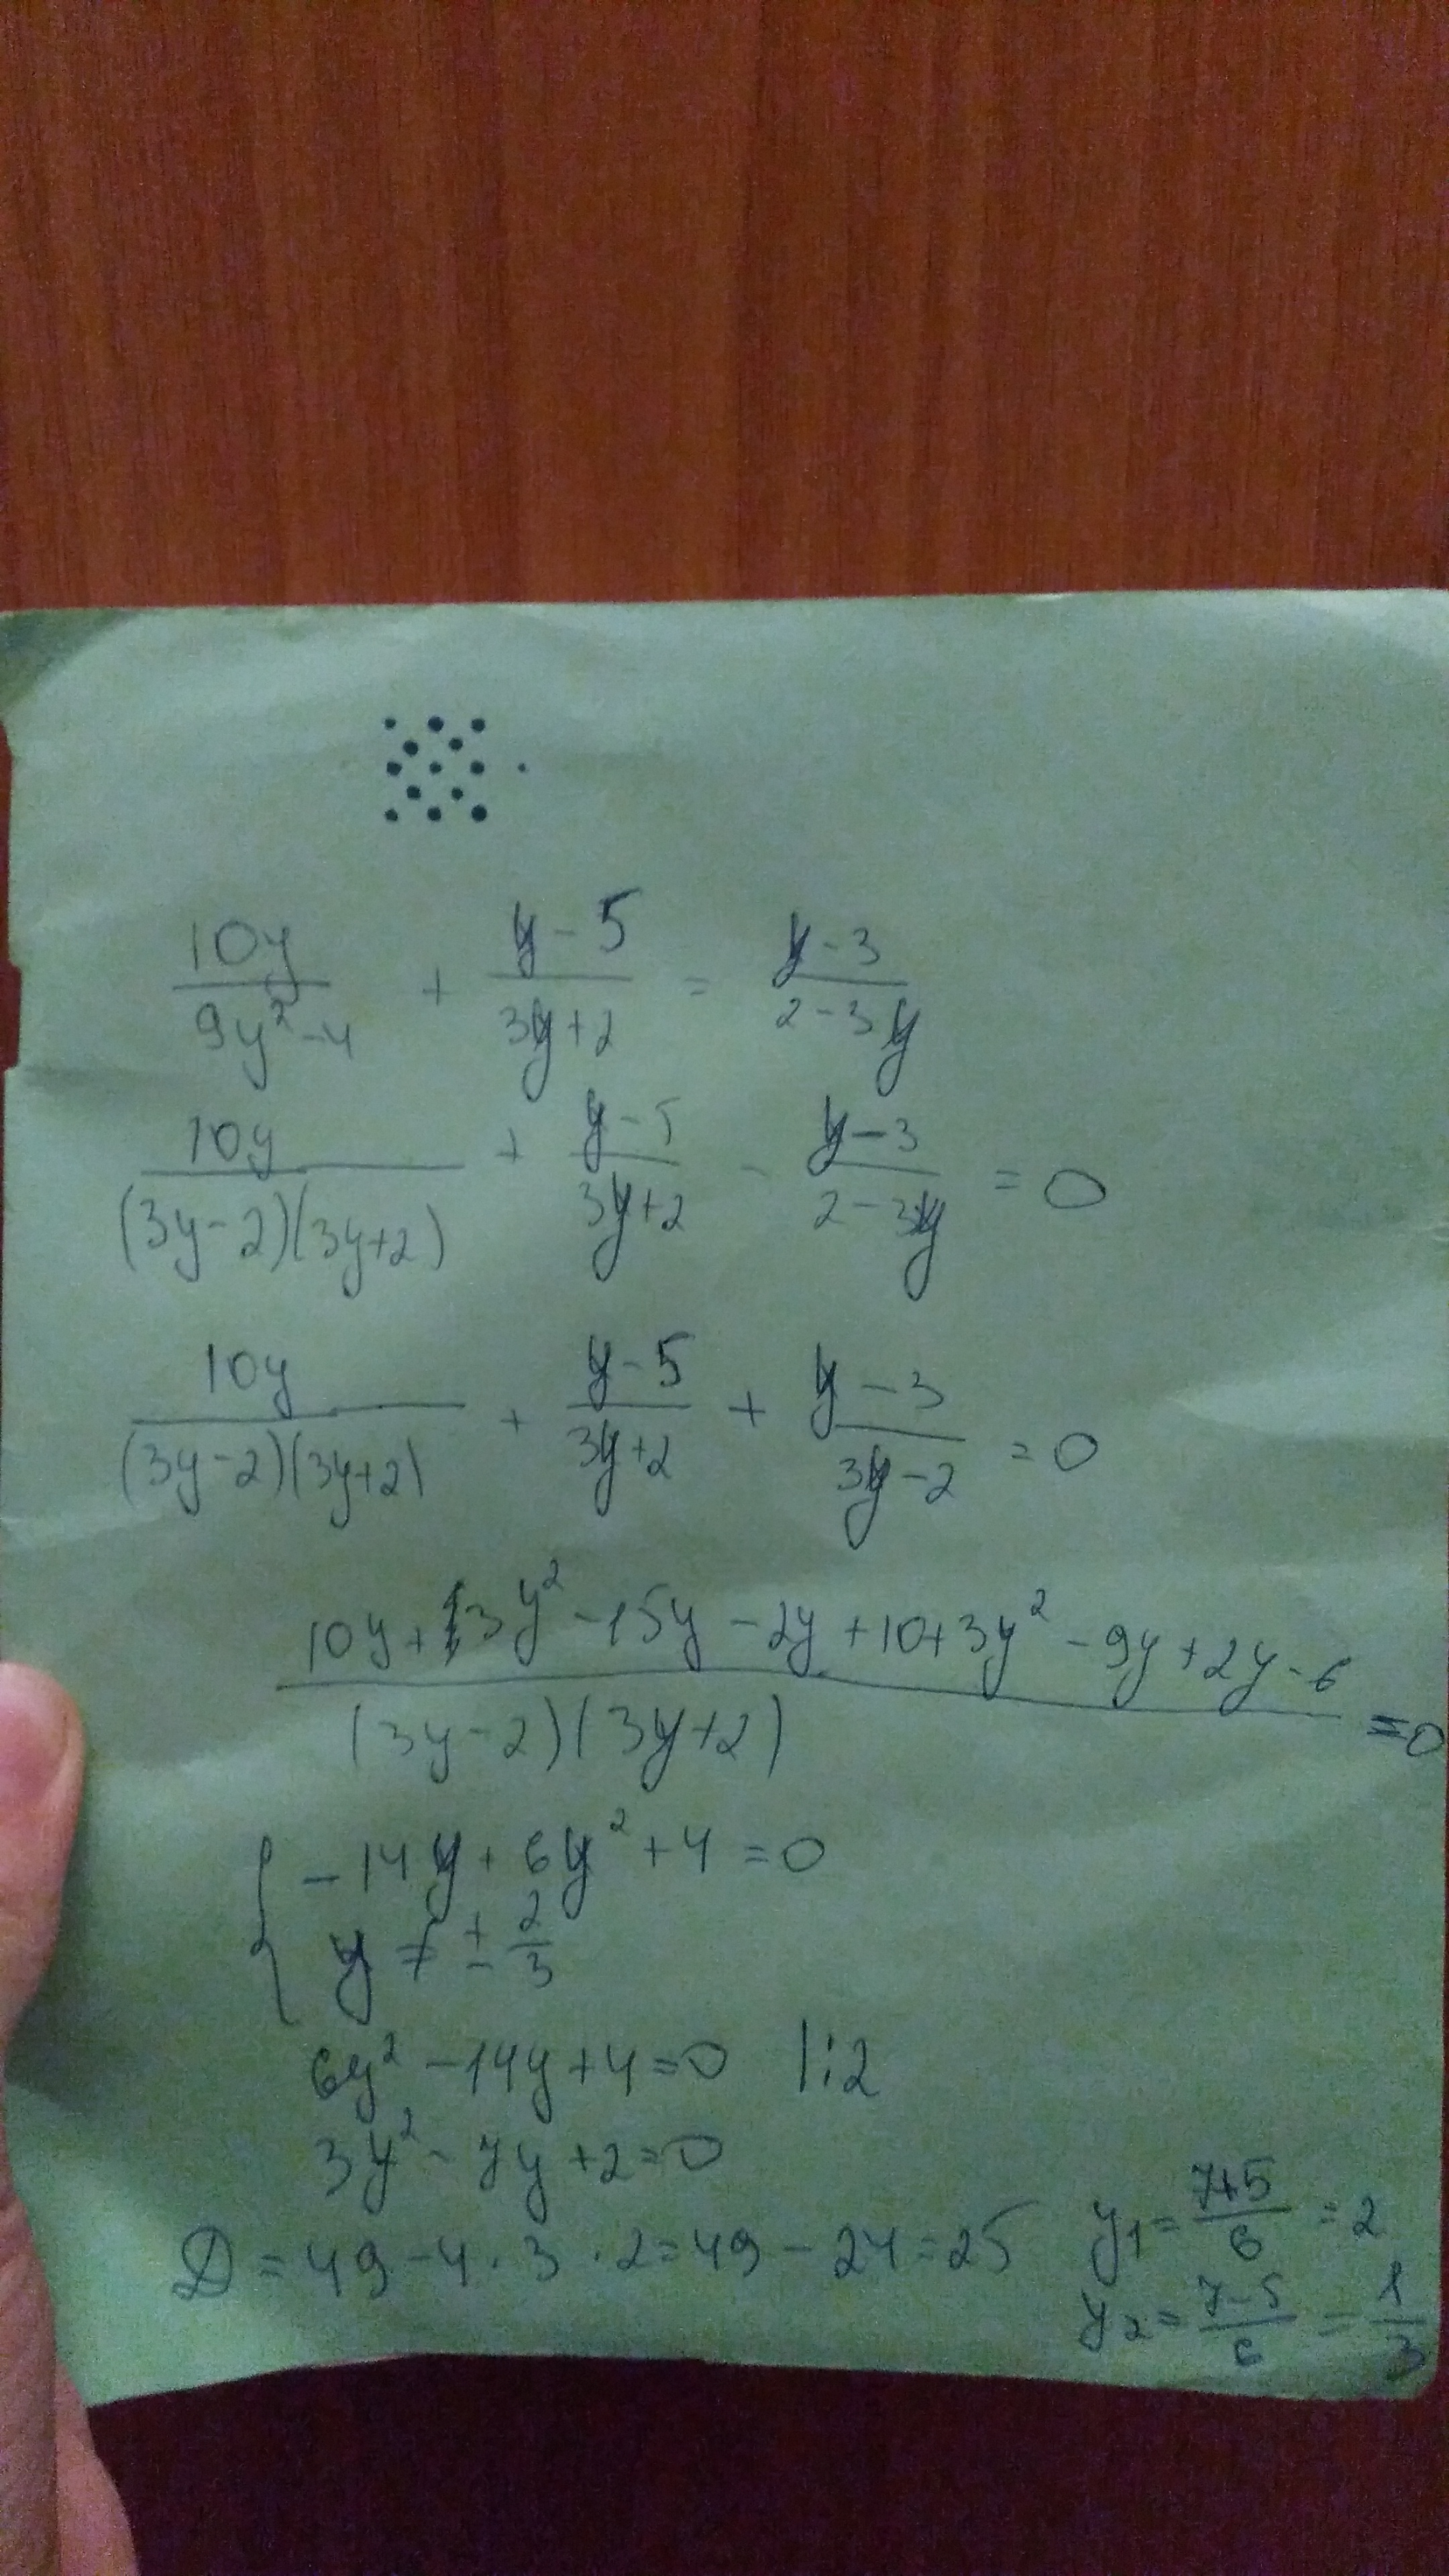 10y/(9y²-4) + (y-5)/(3y+2) = (y-3)/(2-3y)
10y/((3y-2)(3y+2)) + (y-5)/(3y+2) - (y-3)/(2-3y) = 0
10y/((3y-2)(3y+2)) + (y-5)/(3y+2) + (y-3)/(3y-2) = 0
(10y+3y²-15y-2y+10+3y²-9y+2y-6)/((3y-2)(3y+2)) = 0
{ -14y+6y²+4=0
y ≠ ± 2/3
6y²-14y+4=0 |:2
3y²-7y+2=0
D=49-4·3·2=49-24=25
y₁=(7+5)/6=2
y₂=(7-5)/6=1/3